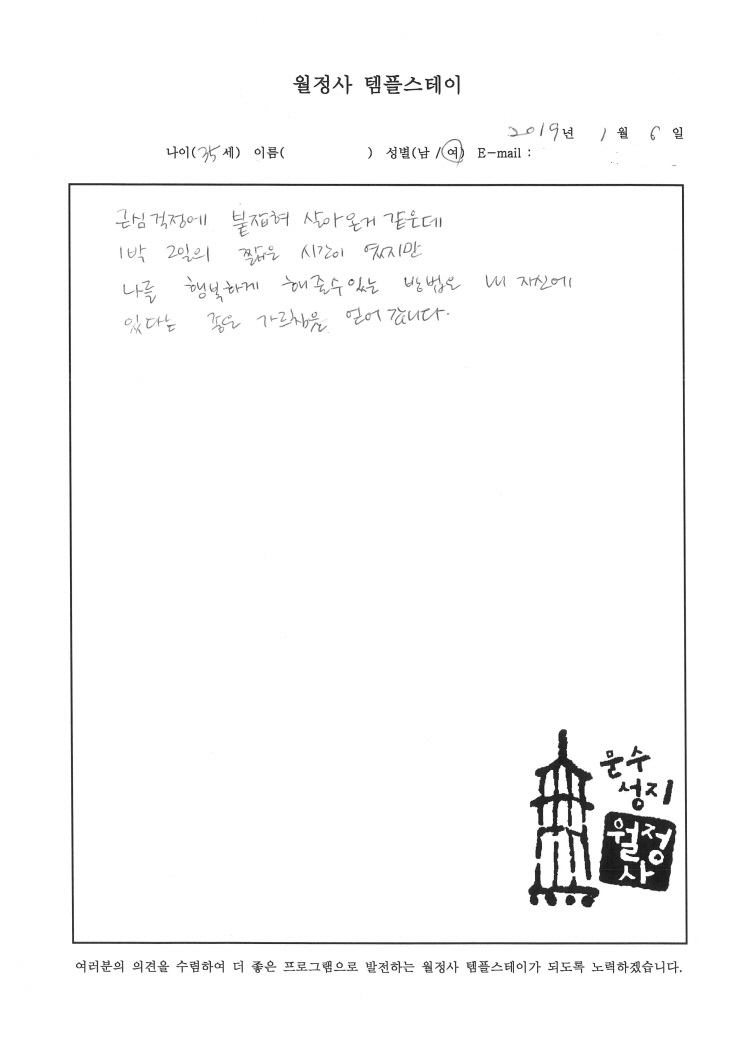 월정사 템플스테이
2019년 1월 6일
나이(35세) 이름( ) 성별(남 / 여) E-mail :
근심걱정에 붙잡혀 살아온거 같은데
1박 2일의 짧은 시간이 였지만
나를 행복하게 해줄수있는 방법은 내 자신에
있다는 좋은 가르침을 얻어 갑니다.
문수
성지
월정
사
여러분의 의견을 수렴하여 더 좋은 프로그램으로 발전하는 월정사 템플스테이가 되도록 노력하겠습니다.